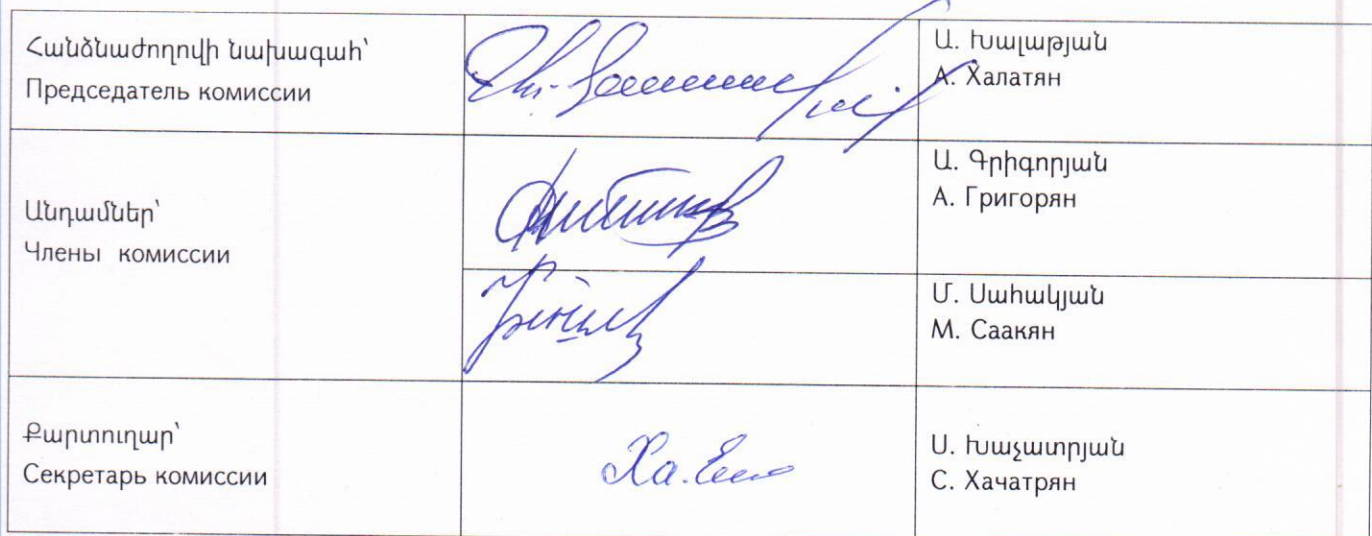 Հանձնաժողովի նախագահ՝
Председатель комиссии
Ա. Խալաթյան
А. Халатян
Անդամներ՝
Члены комиссии
Ա. Գրիգորյան
А. Григорян
Մ. Սահակյան
М. Саакян
Քարտուղար՝
Секретарь комиссии
Ս. Խաչատրյան
С. Хачатрян